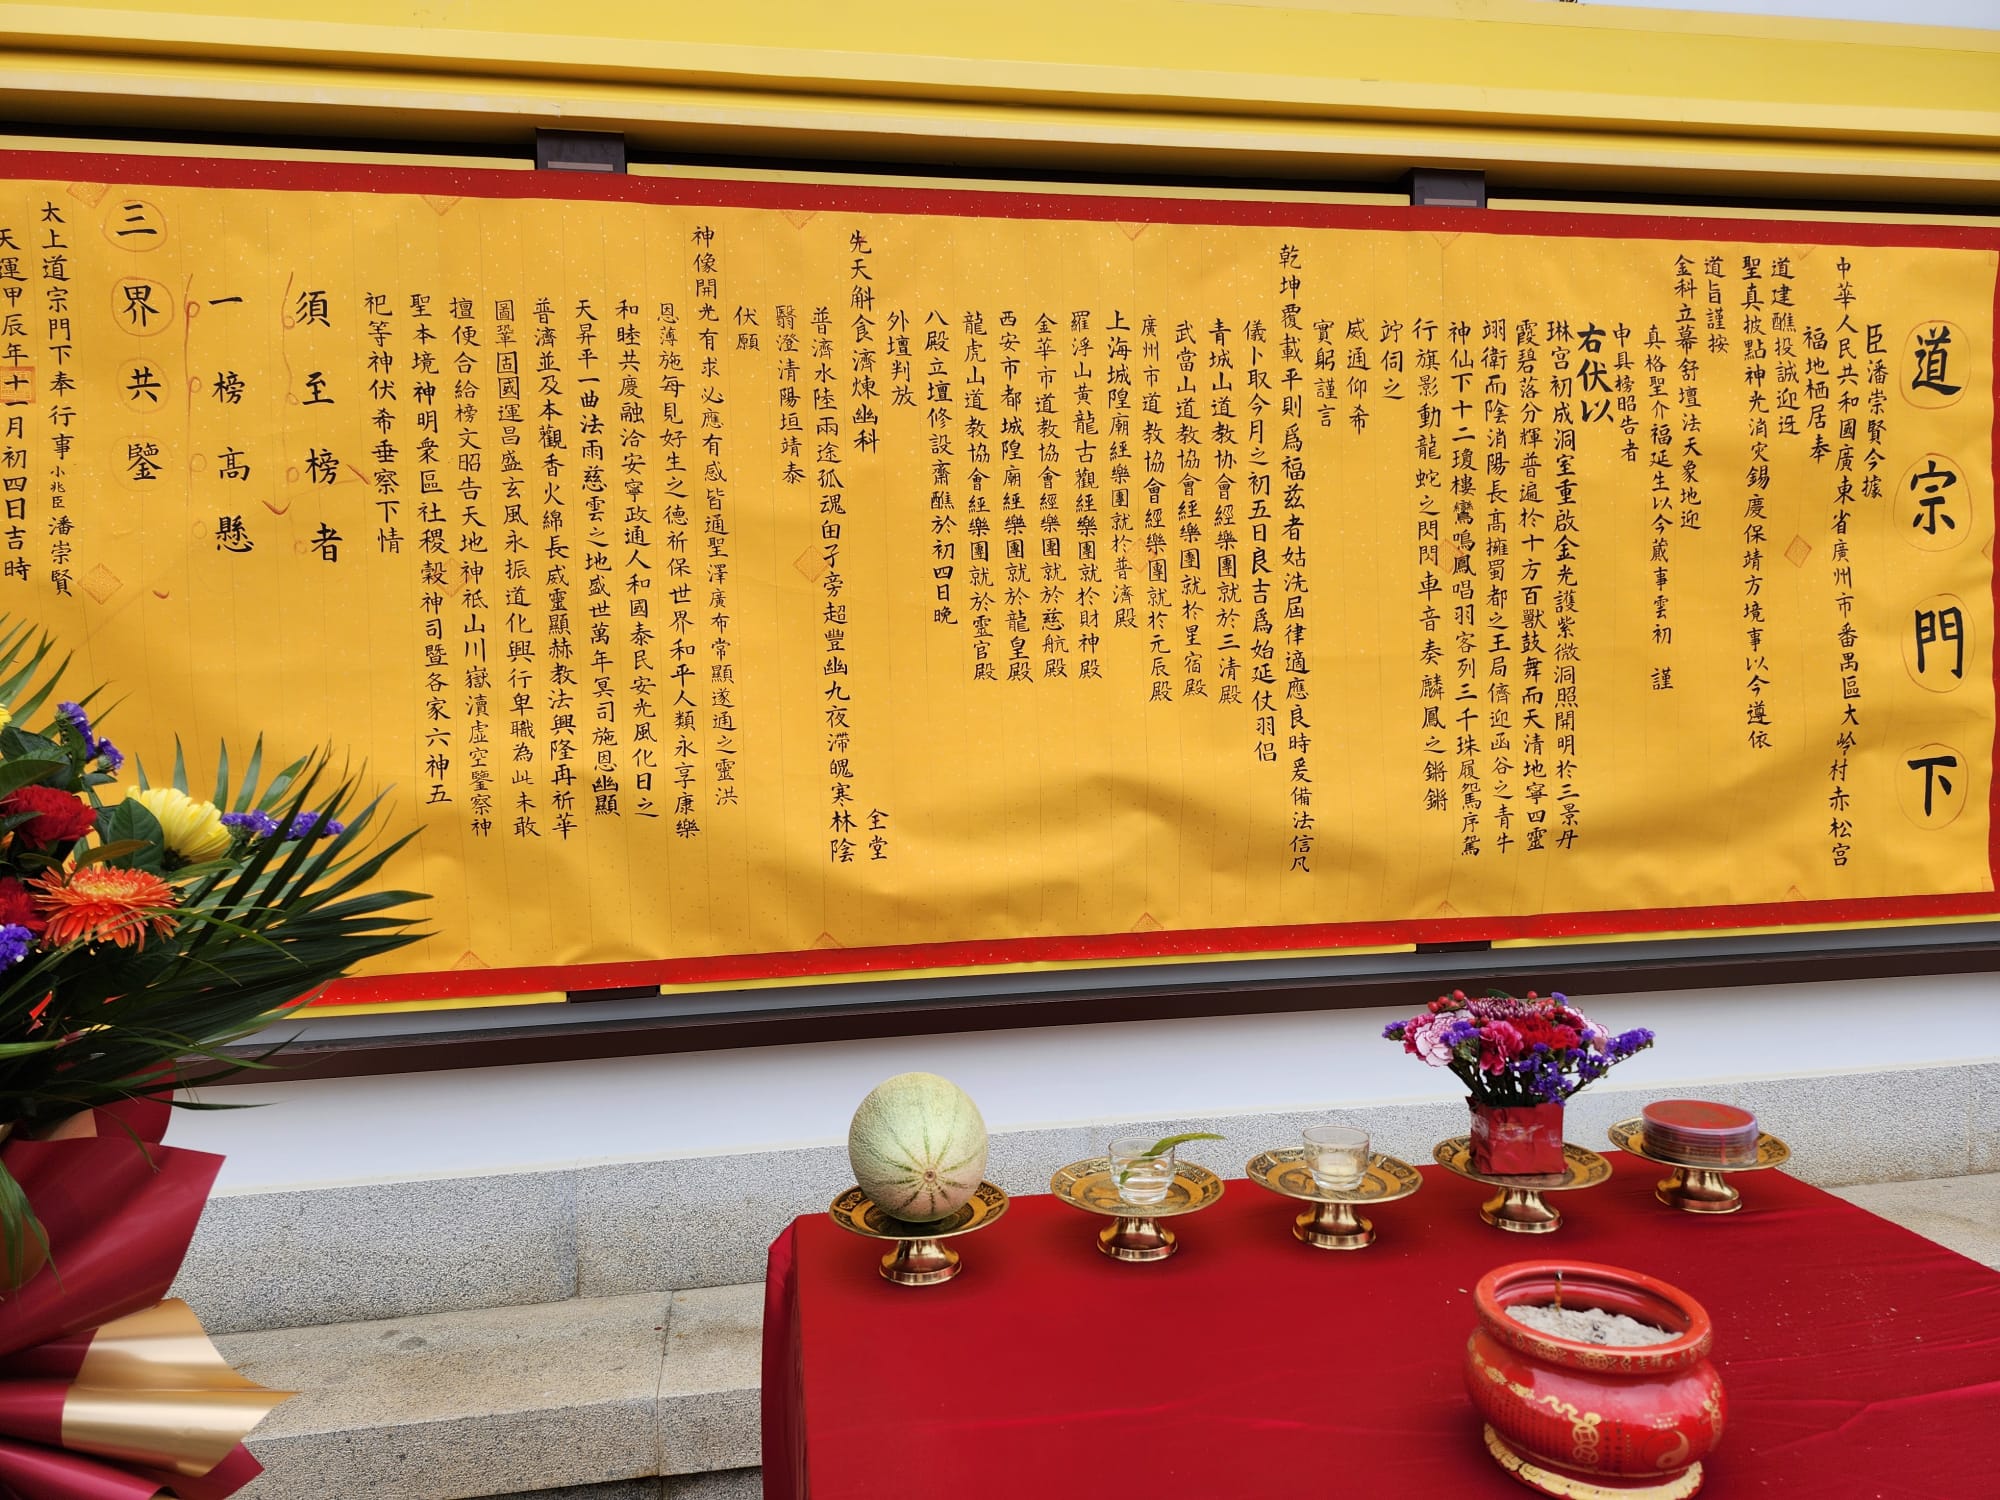 道宗門下
臣潘崇賢今據
中華人民共和國廣東省廣州市番禺區大岭村赤松宮
福地栖居奉
道建醮投誠迎迓
聖真披點神光消灾錫慶保靖方境事以今遵依
道旨謹按
金科立幕舒壇法天象地迎
真格聖介福延生以今蕆事雲初 謹
申具榜昭告者
右伏以
琳宮初成洞室重啟金光護紫微洞照開明於三景丹
霞碧落分輝普遍於十方百獸鼓舞而天清地寧四靈
翊衛而陰消陽長高擁蜀都之王局儕迎函谷之青牛
神仙下十二瓊樓鸞鳴鳳唱羽客列三千珠履鴛序鵉
行旗影動龍蛇之閃閃車音奏麟鳳之鏘鏘
竚伺之
威通仰希
實躬謹言
乾坤覆載平則爲福茲者姑洗屆律適應良時爰備法信凡
儀卜取今月之初五日良吉爲始延仗羽侣
青城山道教协會經樂團就於三清殿
武當山道教協會經樂團就於星宿殿
廣州市道教協會經樂團就於元辰殿
上海城隍廟經樂團就於普濟殿
羅浮山黃龍古觀經樂團就於財神殿
金華市道教協會經樂團就於慈航殿
西安市都城隍廟經樂團就於龍皇殿
龍虎山道教協會經樂團就於靈官殿
八殿立壇修設齋醮於初四日晚
外壇判放 全堂
先天斛食濟煉幽科
普濟水陸兩途孤魂由孑旁超豐幽九夜滯魄寒林陰
翳澄清陽垣靖泰
伏願
神像開光有求必應有感皆通聖澤廣布常顯遂通之靈洪
恩薄施每見好生之德祈保世界和平人類永享康樂
和睦共慶融洽安寧政通人和國泰民安光風化日之
天昇平一曲法雨慈雲之地盛世萬年冥司施恩幽顯
普濟並及本觀香火綿長威靈顯赫教法興隆再祈華
圖鞏固國運昌盛玄風永振道化興行卑職為此未敢
擅便合給榜文昭告天地神祇山川嶽瀆虛空鑒察神
聖本境神明衆區社稷穀神司暨各家六神五
祀等神伏希垂察下情
須至榜者
一榜高懸
三界共鑒
太上道宗門下奉行事小兆臣潘崇賢
天運甲辰年十一月初四日吉時